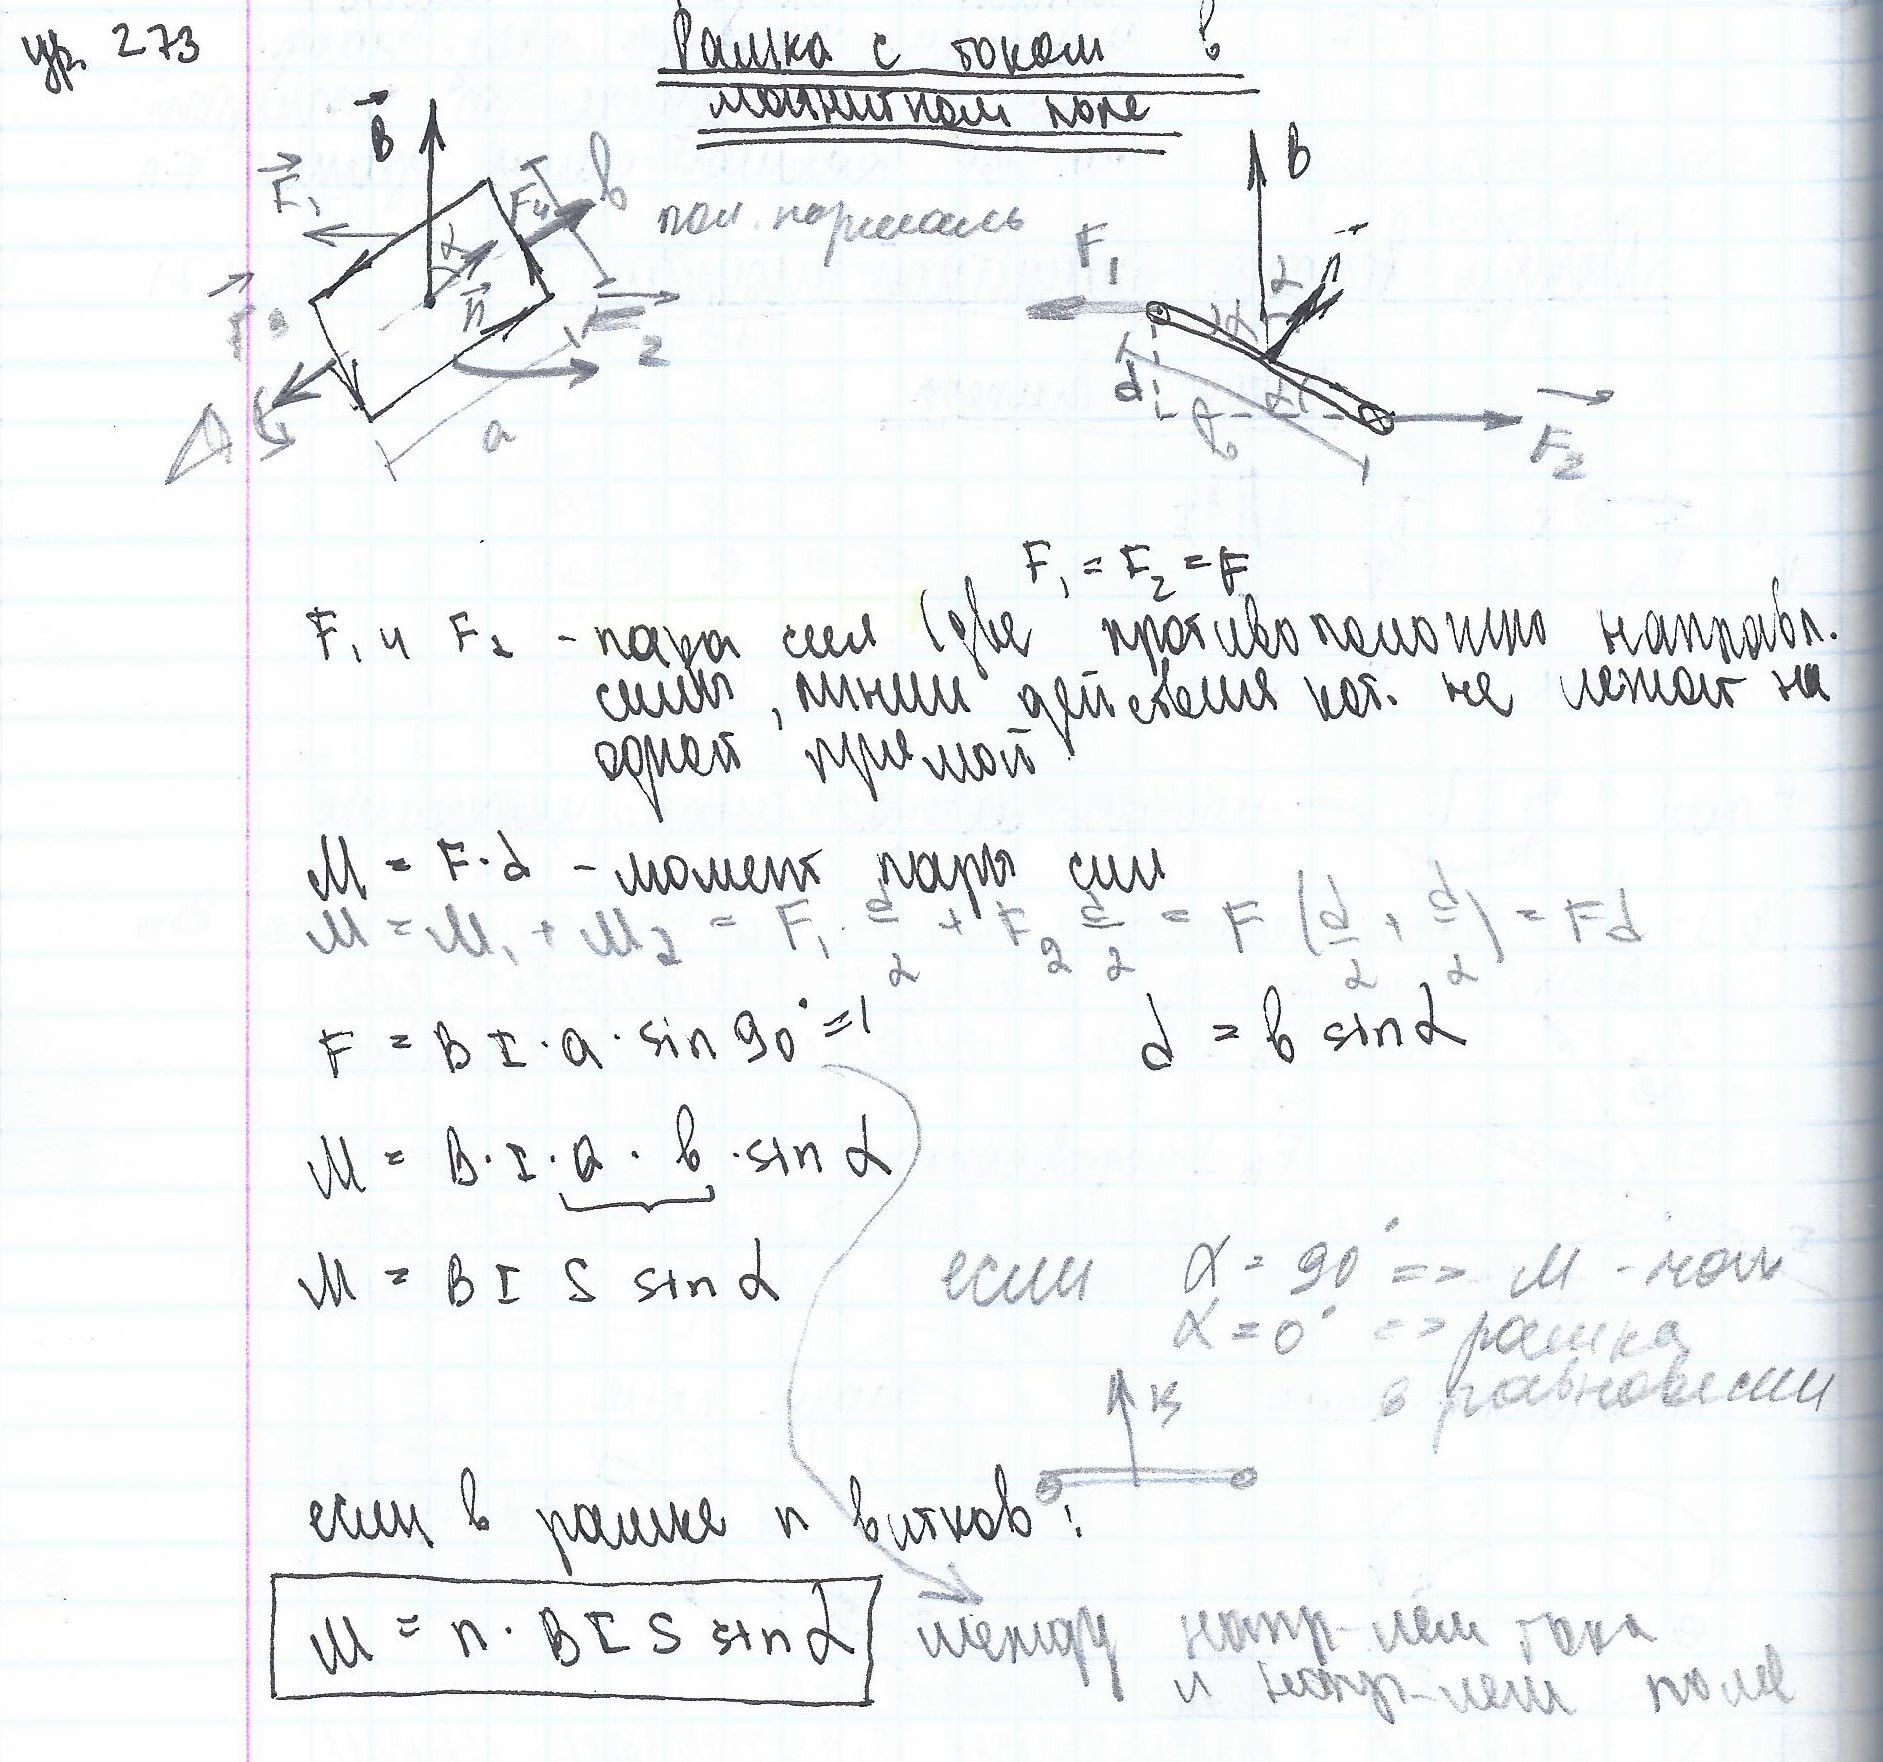 ур. 273
Рамка с током в
магнитном поле
B
F₁
α
n
F₄
в
F₃
F₂
a
пол. нормаль
B
F₁
α
n
α
d
α
в
F₂
F₁ = F₂ = F
F₁ и F₂ - пара сил (две противоположно направл.
силы, линии действия кот. не лежат на
одной прямой
M = F·d - момент пары сил
M = M₁ + M₂ = F₁ · d/2 + F₂ d/2 = F (d/2 + d/2) = Fd
F = B I · a · sin 90° = 1
d = в sin α
M = B · I · a · в · sin α
M = B I S sin α
если α = 90° => M - max
α = 0° => рамка
в равновесии
B
если в рамке n витков:
M = n · B I S sin α
между напр-лем тока
и напр-лем поля